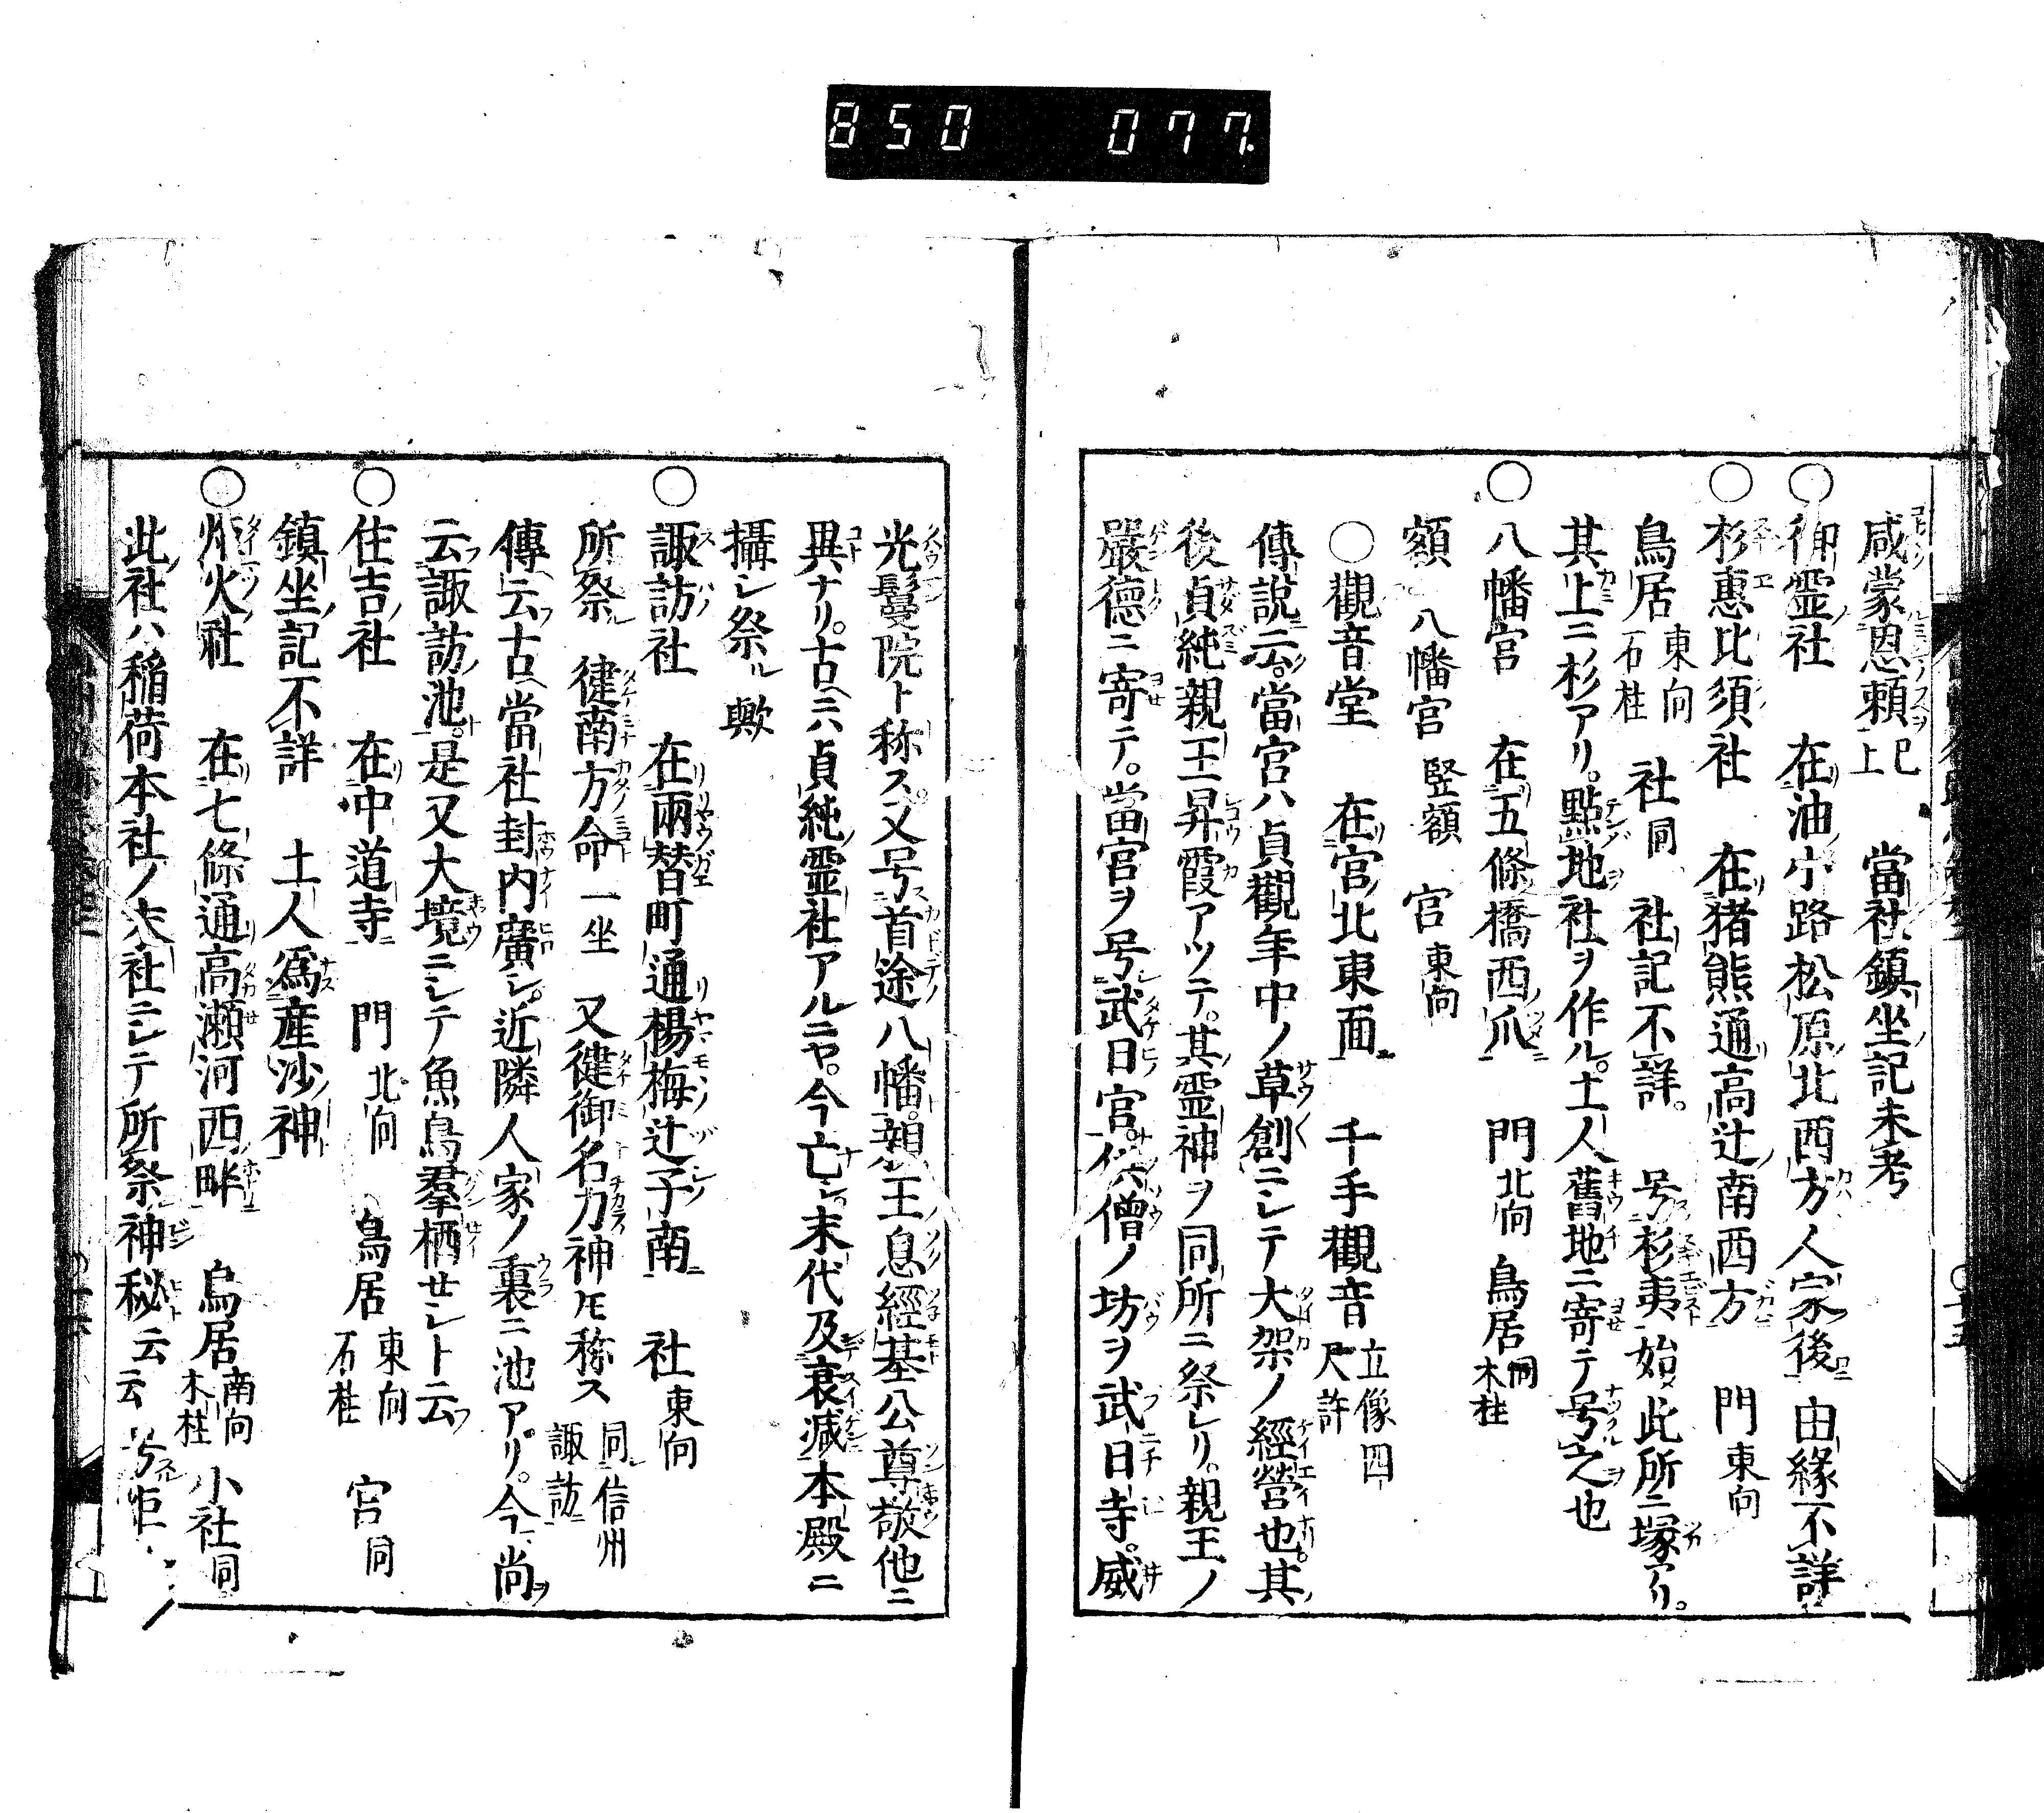 850 077.
咸蒙恩頼已上 當社鎮坐記未考
〇御霊社 在油小路松原北西方人家後 由縁不詳
〇杉惠比須社 在猪熊通高辻南西方 門東向
鳥居東向石柱 社同 社記不詳。 号杉夷始此所ニ塚アリ。
其上ニ杉アリ。點地社ヲ作ル。土人舊地ニ寄テ号之也
〇八幡宮 在五條橋西爪 門北向 鳥居同木柱
額 八幡宮竪額 宮東向
〇觀音堂 在宮北東面 千手觀音立像四尺許
傳説云。當宮ハ貞觀年中ノ草創ニシテ大架ノ經營也。其
後貞純親王昇霞アツテ。其霊神ヲ同所ニ祭レリ。親王ノ
嚴德ニ寄テ。當宮ヲ号武日宮。供僧ノ坊ヲ武日寺。威
光鬘院ト称ス。又号首途八幡。親王息經基公尊敬他ニ
異ナリ。古ヘハ貞純霊社アルニヤ。今亡シ。末代及衰減本殿ニ
攝レ祭ル歟
〇諏訪社 在兩替町通楊梅辻子南 社東向
所祭 健南方命一坐 又健御名力神ノモ称ス同信州諏訪
傳云古ヘ當社封内廣シ。近隣人家ノ裏ニ池アリ。今尚
云諏訪池。是又大境ニシテ魚鳥羣栖セシト云
〇住吉社 在中道寺 門北向 鳥居東向石柱 宮同
鎮坐記不詳 土人爲産沙神
〇炬火社 在七條通高瀬河西畔 鳥居南向木柱 小社同
此社ハ稲荷本社ノ末社ニシテ所祭神秘云云 号炬